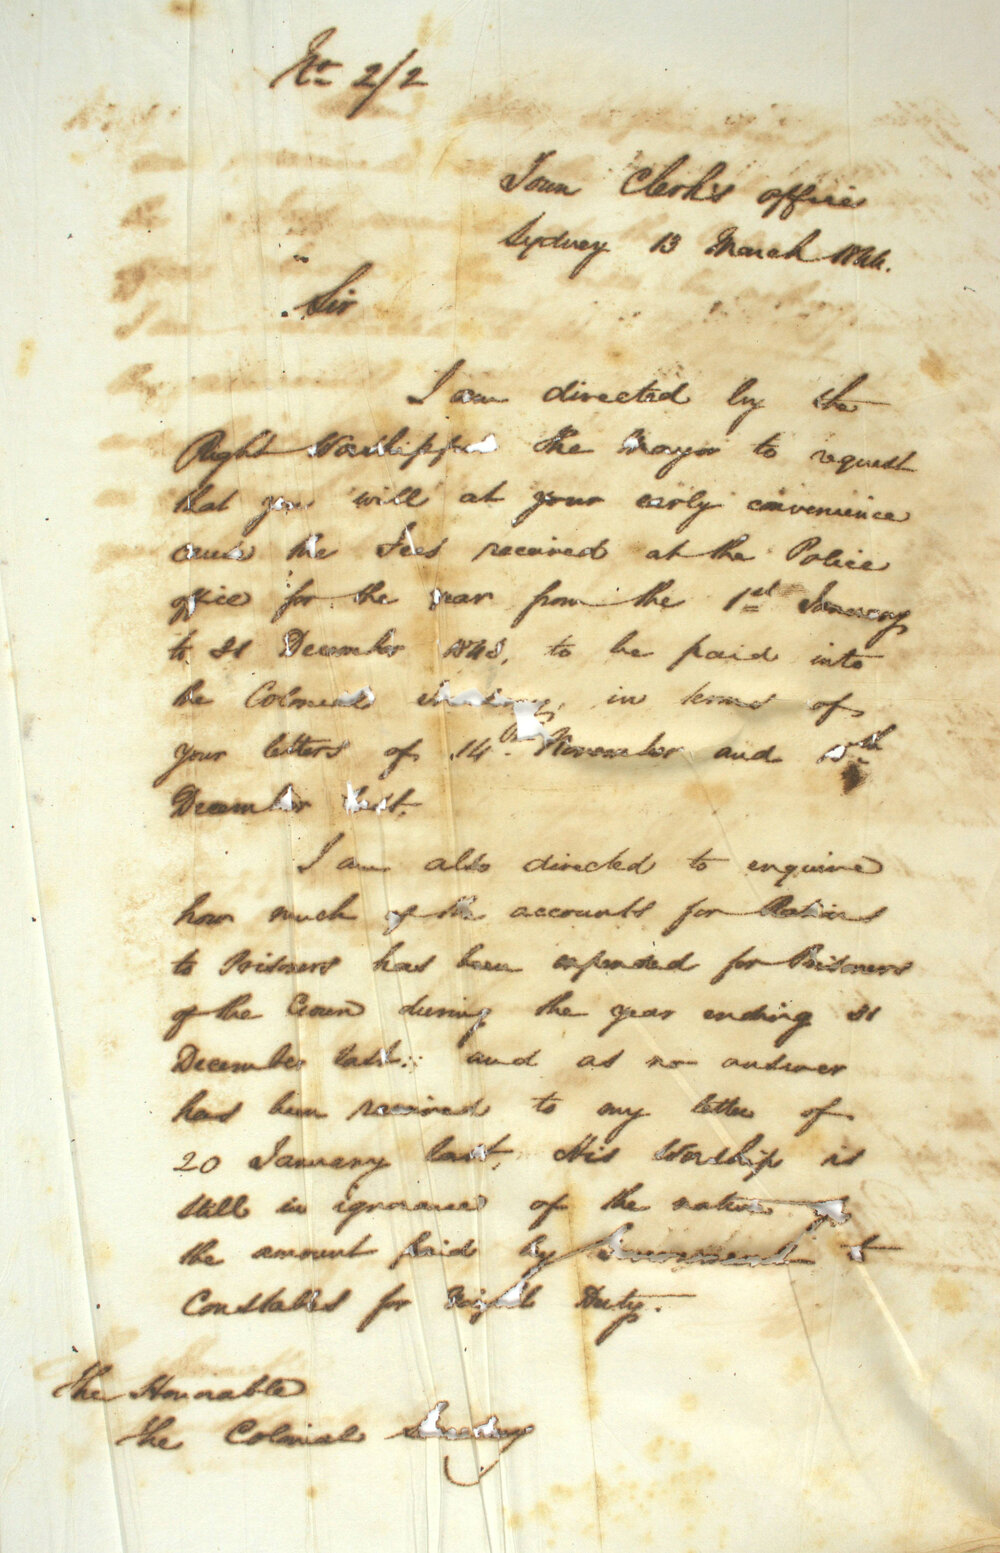 No 2/2
Town Clerk's office
Sydney 13 March 1844.
Sir
I am directed by the
Right Worshipful the Mayor to request
that you will at your early convenience
cause the Fees received at the Police
office for the year from the 1st January
to 31 December 1843, to be paid into
the Colonial Treasury, in terms of
your letters of 14th November and
December last.
I am also directed to enquire
how much of the accounts for Rations
to Prisoners has been expended for Prisoners
of the Crown during the year ending 31
December last: and as no answer
has been received to my letter of
20 January last, His Worship is
still in ignorance of the nature of
the amount paid by Government to
Constables for Duty.
The Honorable
the Colonial Secretary